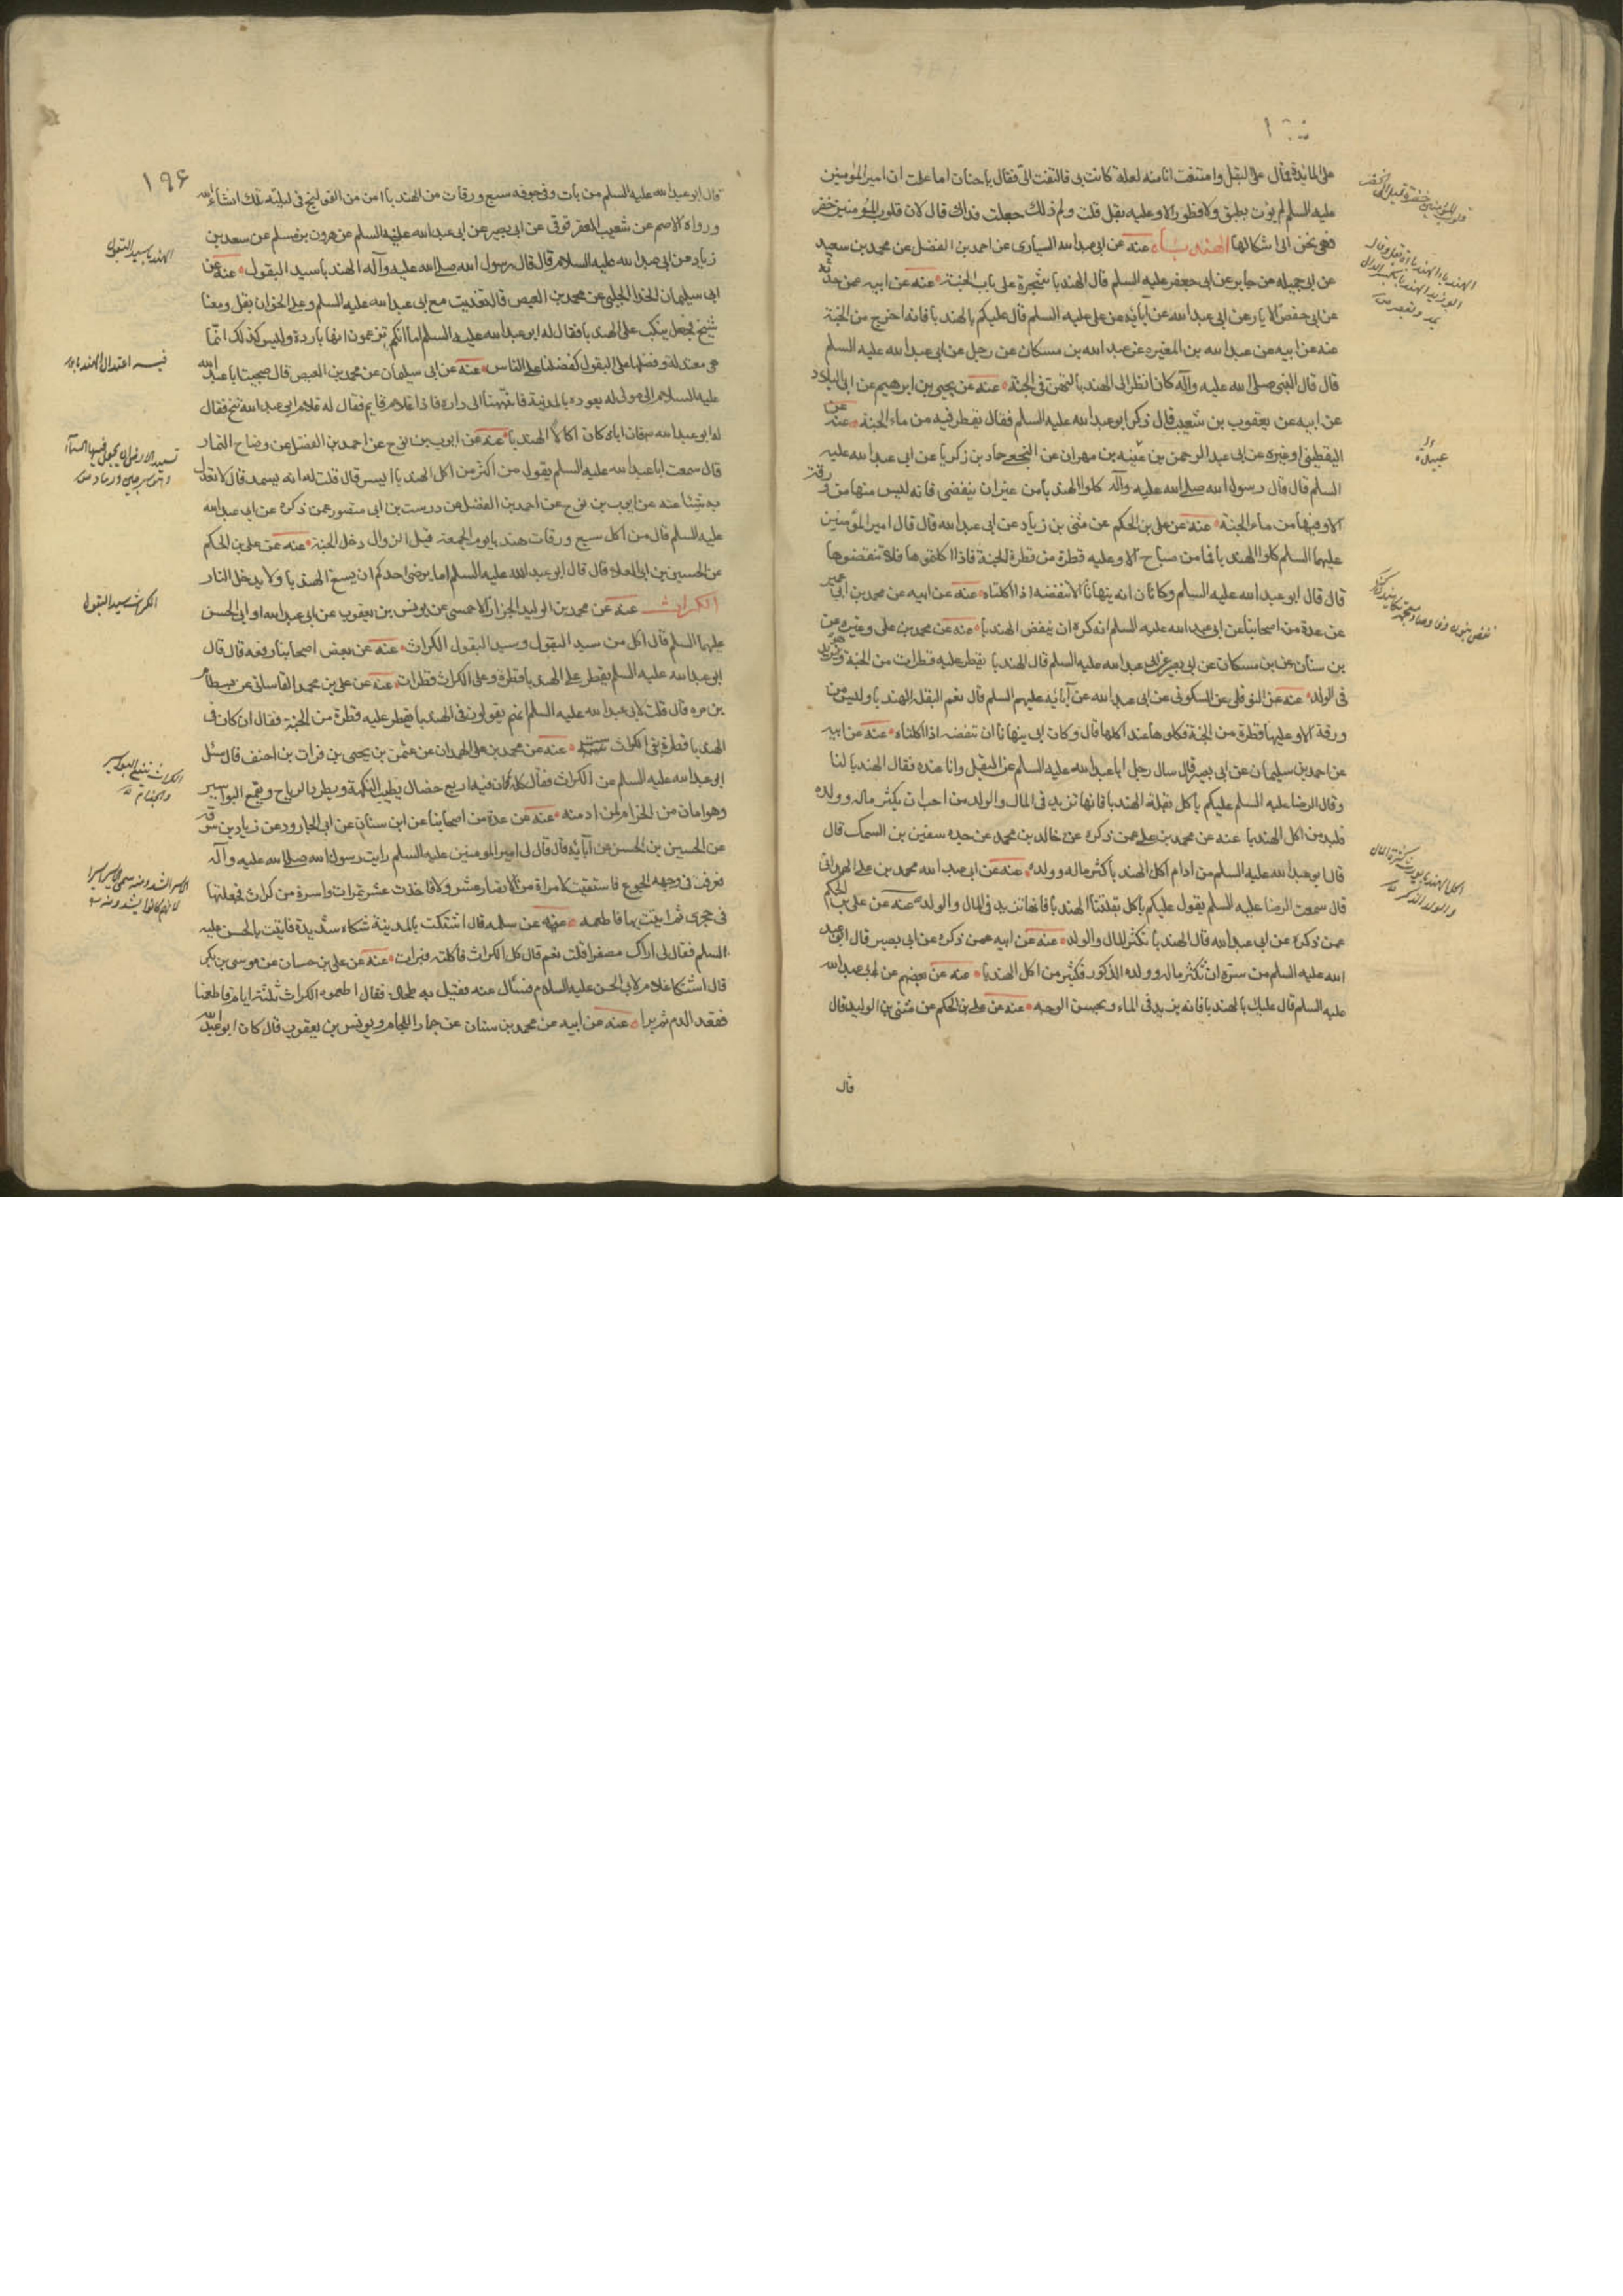 على المائدة فمال على البقل وامتنعت انا منه لعلة كانت بى فالتفت الى فقال يا حنان اما علمت ان امير المؤمنين
عليه السلم لم يؤت بطبق ولا فطور الا وعليه بقل قلت ولم ذلك جعلت فداك قال لان قلوب المؤمنين خضر
فهى تحن الى اشكالها الهندباء عنه عن ابى عبد الله السيارى عن احمد بن الفضل عن محمد بن سعيد
عن ابى جميله عن جابر عن ابى جعفر عليه السلم قال الهندبا شجرة على باب الجنة عنه عن ابيه عمن حدثه
عن ابى حفص الابار عن ابى عبد الله عن آبائه عن على عليه السلم قال عليكم بالهندبا فانه اخرج من الجنة
عنه عن ابيه عن عبد الله بن المغيره عن عبد الله بن مسكان عن رجل عن ابى عبد الله عليه السلم
قال قال النبى صلى الله عليه وآله كان انظر الى الهندبا تهتز فى الجنة عنه عن يحيى بن ابرهيم عن ابى البلاد
عن ابيه عن يعقوب بن شعيب قال ذكر ابو عبد الله عليه السلم فقال يقطر فيه من ماء الجنة عنه عن
اليقطينى او غيره عن ابى عبد الرحمن بن قتيبه بن مهران عن النخعى حماد بن زكريا عن ابى عبد الله عليه
السلم قال قال رسول الله صلى الله عليه وآله كلوا الهندبا من غير ان ينفض فانه ليس منها من ورقة
الا وفيها من ماء الجنة عنه عن على بن الحكم عن مثنى بن زياد عن ابى عبد الله قال قال امير المؤمنين
عليهما السلم كلوا الهندبا فما من صباح الا وعليه قطرة من قطر الجنة فاذا اكلتموها فلا تنفضوها
قال قال ابو عبد الله عليه السلم وكان ابى ينهانا ان ننفضه اذا اكلناه عنه عن ابيه عن محمد بن ابى عمير
عن عدة من اصحابنا عن ابى عبد الله عليه السلم انه كره ان ينفض الهندبا عنه عن محمد بن على وغيره عن
بن سنان عن بن مسكان عن ابى بصير عن ابى عبد الله عليه السلم قال الهندبا يقطر عليه قطرات من الجنة وهو يزيد
فى الولد عنه عن النوفلى عن السكونى عن ابى عبد الله عن آبائه عليهم السلم قال نعم البقل الهندبا وليس من
ورقة الا وعليها قطرة من الجنة فكلوها عند اكلها قال وكان ابى ينهانا ان ننفضه اذا اكلناه عنه عن ابيه
عن احمد بن سليمان عن ابى بصير قال سال رجل ابا عبد الله عليه السلم عن البقل وانا عنده فقال الهندبا لنا
وقال الرضا عليه السلم عليكم باكل بقلة الهندبا فانها تزيد فى المال والولد من احب ان يكثر ماله وولده
فليدمن اكل الهندبا عنه عن محمد بن على عمن ذكره عن خالد بن محمد عن جده سفين بن السمط قال
قال ابو عبد الله عليه السلم من ادام اكل الهندبا كثر ماله وولده عنه عن ابى عبد الله محمد بن على الهمدانى
قال سمعت الرضا عليه السلم يقول عليكم باكل بقلتنا الهندبا فانها تزيد فى المال والولد عنه عن على بن الحكم
عمن ذكره عن ابى عبد الله قال الهندبا تكثر المال والولد عنه عن ابيه عمن ذكره عن ابى بصير قال ابو عبد
الله عليه السلم من سره ان تكثر ماله وولده الذكور فليكثر من اكل الهندبا عنه عن بعضهم عن ابى عبد الله
عليه السلم قال عليك بالهندبا فانه يزيد فى الماء ويحسن الوجه عنه عن على بن الحكم عن مثنى بن الوليد قال
قال
عبيدة
اكل الهندبا يورث كثرة المال
والولد الذكر
١٩۶
قال ابو عبد الله عليه السلم من بات وفى جوفه سبع ورقات من الهندبا امن من القولنج فى ليلته تلك انشاء الله
ورواه الاصم عن شعيب العقرقوفى عن ابى بصير عن ابى عبد الله عليه السلم عن هرون بن مسلم عن سعد بن
زياد عن ابى عبد الله عليه السلام قال قال رسول الله صلى الله عليه وآله الهندبا سيد البقول عنه عن
ابى سليمان الحذاء الجبلى عن محمد بن الفيض قال تغديت مع ابى عبد الله عليه السلم وعلى الخوان بقل ومعنا
شيخ فجعل ينكب على الهندبا فقال له ابو عبد الله عليه السلم اما انكم تزعمون انها باردة وليس كذلك انما
هى معتدلة وفضلها على البقول كفضلنا على الناس عنه عن ابى سليمان عن محمد بن الفيض قال صحبت ابا عبد الله
عليه السلام الى مولى له يعوده بالمدينة فانتهينا الى داره فاذا غلام قايم فقال له غلام ابى عبد الله تنح فقال
له ابو عبد الله مه فان اباه كان اكالا الهندبا عنه عن ايوب بن نوح عن احمد بن الفضل عن وضاح التمار
قال سمعت ابا عبد الله عليه السلم يقول من اكثر من اكل الهندبا ايسر قال قلت له انه يسمد قال لا تعدل
به شيئا عنه عن ايوب بن نوح عن احمد بن الفضل عن درست بن ابى منصور عمن ذكره عن ابى عبد الله
عليه السلم قال من اكل سبع ورقات هندبا يوم الجمعة قبل الزوال دخل الجنة عنه عن على بن الحكم
عن الحسين بن ابى العلاء قال قال ابو عبد الله عليه السلم اما يرضى احدكم ان يشبع الهندبا ولا يدخل النار
الكراث عنه عن محمد بن الوليد الجزار الاحمسى عن يونس بن يعقوب عن ابى عبد الله او ابى الحسن
عليهما السلم قال لكل من سيد البقول وسيد البقول الكراث عنه عن بعض اصحابنا رفعه قال قال
ابى عبد الله عليه السلم يقطر على الهندبا قطرة وعلى الكراث قطرات عنه عن على بن محمد القاسانى عن بسطام
بن مره قال قلت لابى عبد الله عليه السلم انهم يقولون فى الهندبا يقطر عليه قطرة من الجنة فقال ان كان فى
الهندبا قطرة ففى الكراث ست عنه عن محمد بن على الهمدان عن عثمن بن يحيى بن فرات بن احنف قال سئل
ابو عبد الله عليه السلم عن الكراث فقال كله فان فيه اربع خصال يطيب النكهة ويطرد الرياح ويقمع البواسير
وهو امان من الجذام لمن ادمنه عنه عن عدة من اصحابنا عن ابن سنان عن ابى الجارود عن زياد بن سوقه
عن الحسين بن الحسن عن آبائه قال قال لى امير المؤمنين عليه السلم رايت رسول الله صلى الله عليه وآله
فعرف فى وجهه الجوع فاستقيت لامراة من الانصار عشر دلاء فاخذت عشر تمرات واسرة من كراث فجعلتها
فى حجرى ثم اتيت بها فاطعمه عنه عن سلمه قال اشتكيت بالمدينة شكاء شديدة فاتيت بالحسن عليه
السلم فقال لى اراك مصفرا قلت نعم قال كل الكراث فاكلته فبرات عنه عن على بن حسان عن موسى بن بكر
قال اشتكا غلام لابى الحسن عليه السلام فسئال عنه فقيل به طحال فقال اطعموه الكراث ثلثة ايام فاطعمنا
فقعد الدم ثم برا عنه عن ابيه عن محمد بن سنان عن حماد اللحام ويونس بن يعقوب قال كان ابو عبد الله
الهندبا سيد البقول
فيه اعتدال الهندباء
الكراث سيد البقول
الكراث ينفع البواسير
والجذام